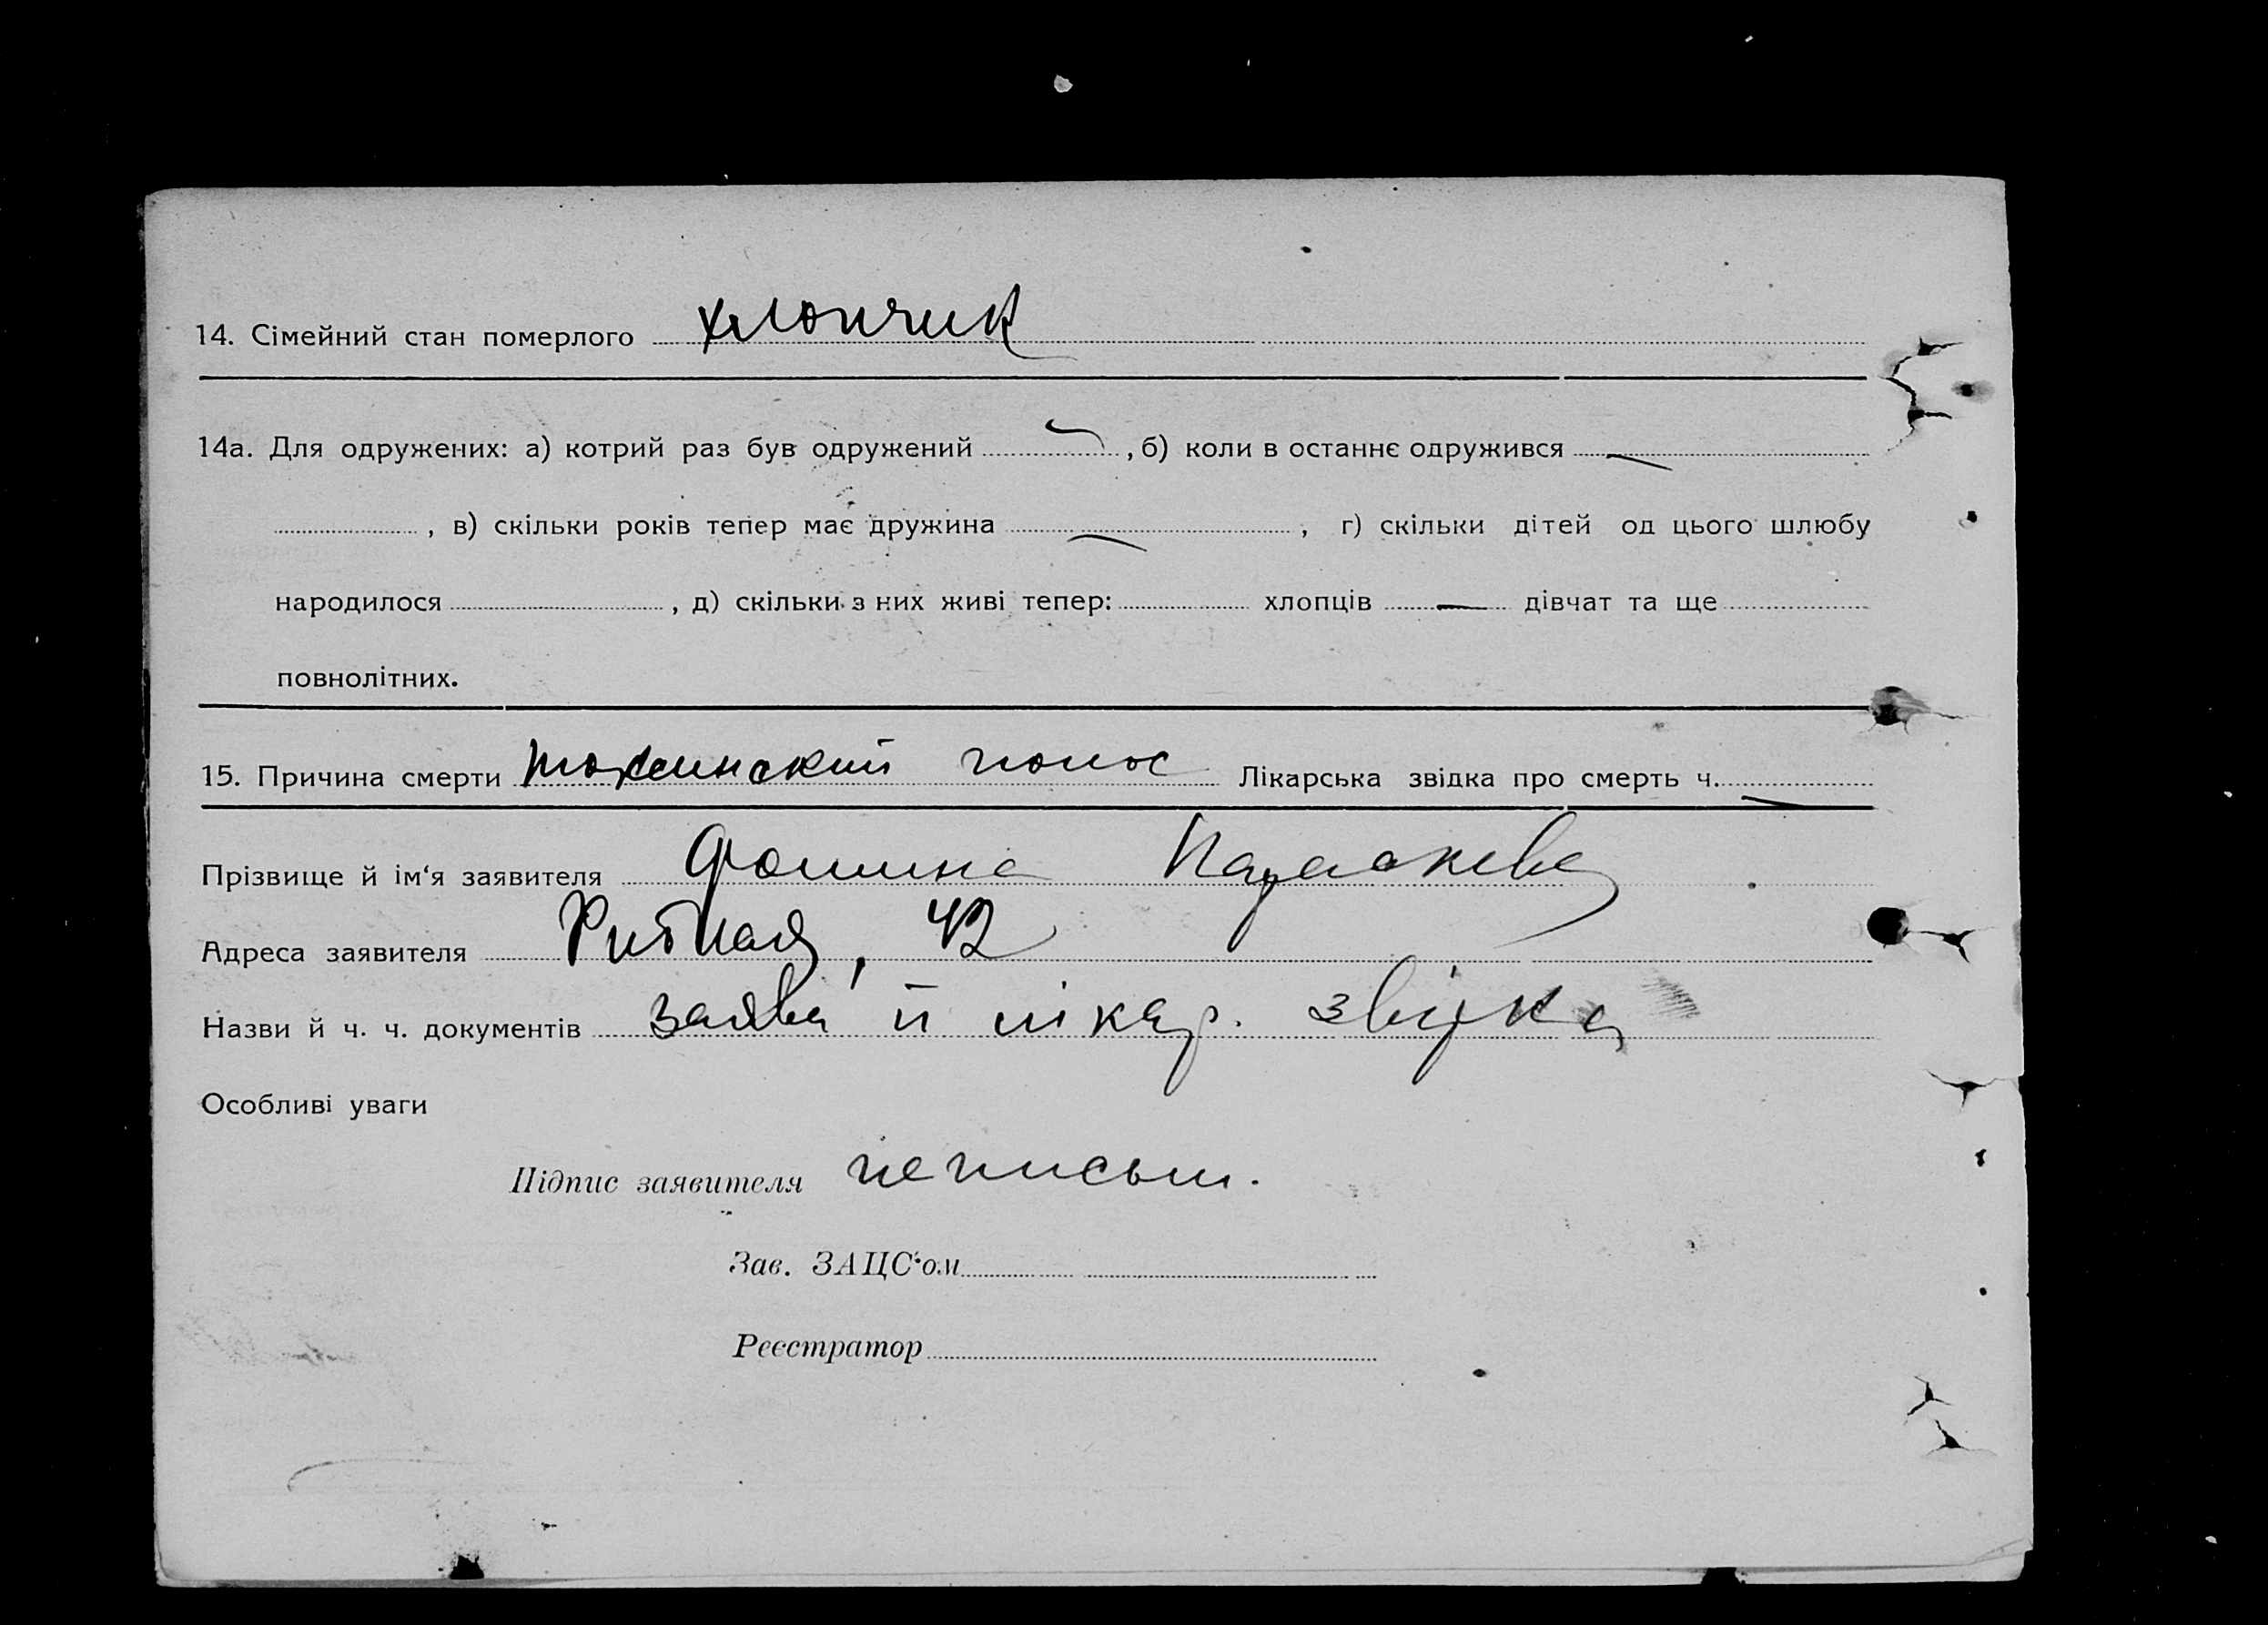 14. Сімейний стан померлого хлопчик
14а. Для одружених: а) котрий раз був одружений —, б) коли в останнє одружився —
, в) скільки років тепер має дружина —, г) скільки дітей од цього шлюбу
народилося , д) скільки з них живі тепер: хлопців — дівчат та ще
повнолітних.
15. Причина смерти понос Лікарська звідка про смерть ч. —
Прізвище й ім‘я заявителя Фомина Параскева
Адреса заявителя Рибная, 42
Назви й ч. ч. документів заява й лікар. звідка
Особливі уваги
Підпис заявителя неписьм.
Зав. ЗАЦС‘ом
Реєстратор